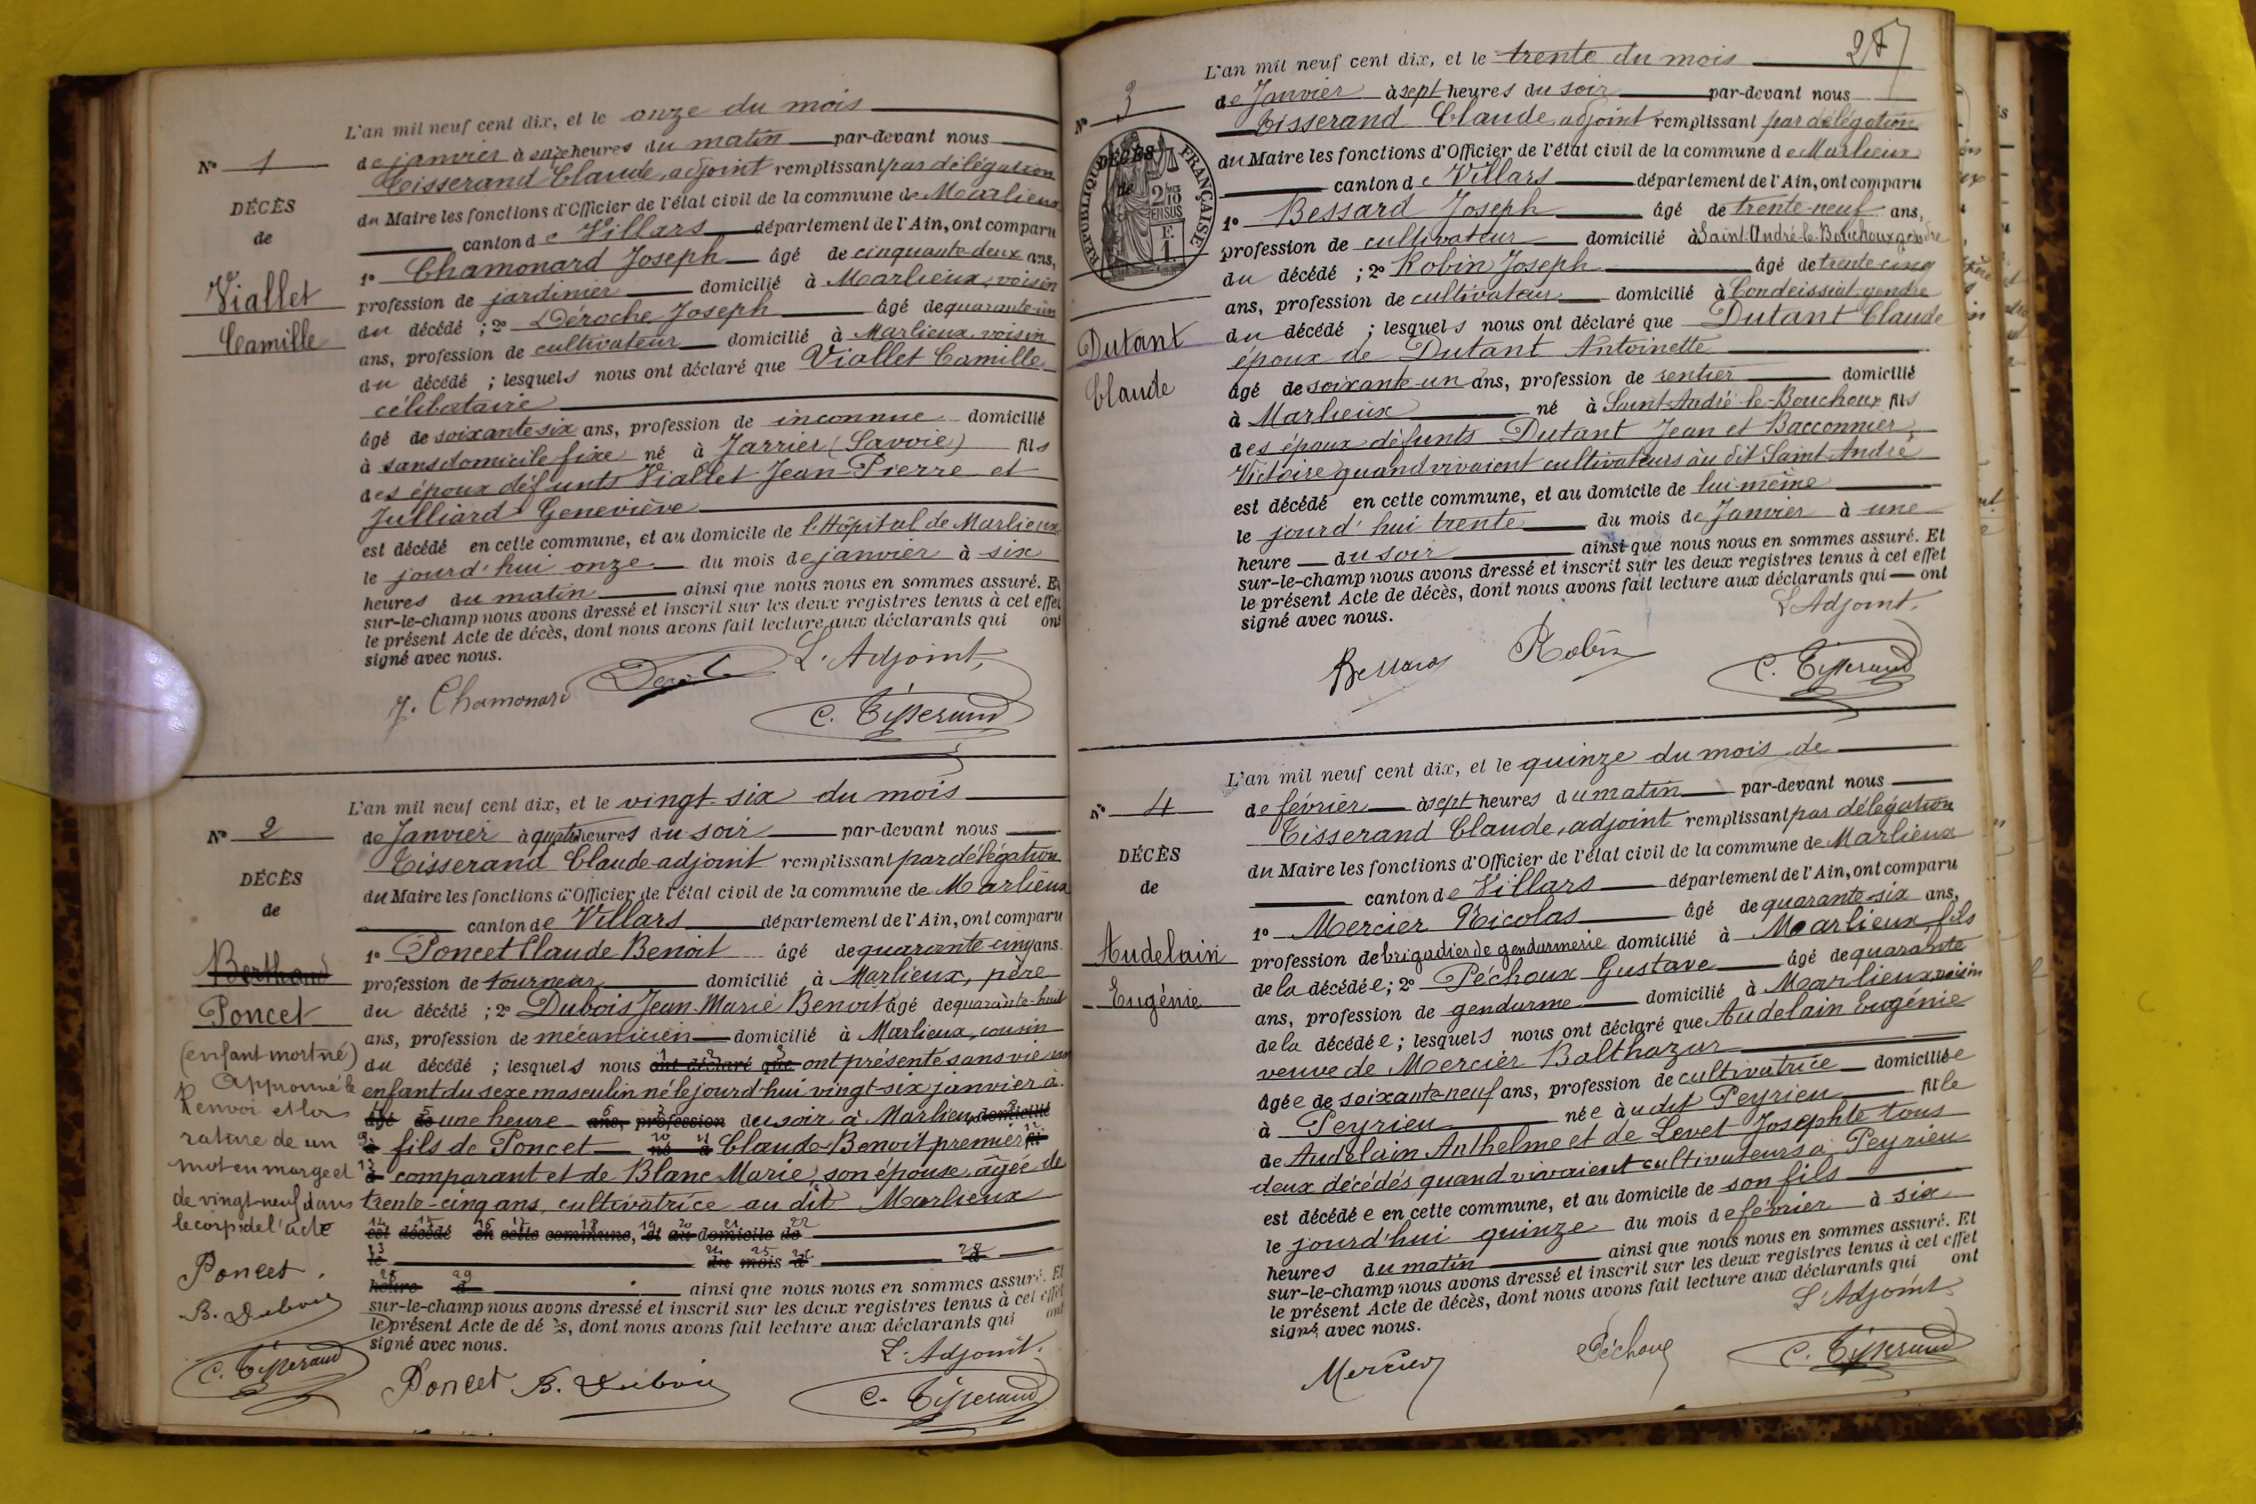 L'an mil neuf cent dix, et le onze du mois
N° 1
de janvier à six heures du matin par-devant nous
Tisserand Claude, adjoint remplissant par délégation
DÉCÈS
du Maire les fonctions d'Officier de l'état civil de la commune de Marlieux
de
canton de Villars département de l'Ain, ont comparu
1° Chamonard Joseph âgé de cinquante-deux ans,
Viallet
profession de jardinier domicilié à Marlieux, voisin
du décédé ; 2° Déroche Joseph âgé de quarante-un
Camille
ans, profession de cultivateur domicilié à Marlieux voisin
du décédé ; lesquels nous ont déclaré que Viallet Camille
célibataire
âgé de soixante-six ans, profession de inconnue domicilié
à sans domicile fixe né à Jarrier (Savoie) fils
des époux défunts Viallet Jean-Pierre et
Julliard Geneviève
est décédé en cette commune, et au domicile de l'Hôpital de Marlieux
le jourd'hui onze du mois de janvier à six
heures du matin ainsi que nous nous en sommes assuré. Et
sur-le-champ nous avons dressé et inscrit sur les deux registres tenus à cet effet
le présent Acte de décès, dont nous avons fait lecture aux déclarants qui ont
signé avec nous.
L'Adjoint,
J. Chamonard
C. Tisserand
L'an mil neuf cent dix, et le vingt-six du mois
N° 2
de Janvier à quatre heures du soir par-devant nous
Tisserand Claude adjoint remplissant par délégation
DÉCÈS
du Maire les fonctions d'Officier de l'état civil de la commune de Marlieux
de
canton de Villars département de l'Ain, ont comparu
Berthand
1° Poncet Claude Benoit âgé de quarante-cinq ans
profession de tourneur domicilié à Marlieux, père
Poncet
du décédé ; 2° Dubois Jean-Marie Benoit âgé de quarante-huit
ans, profession de mécanicien domicilié à Marlieux, cousin
(enfant mort né)
du décédé ; lesquels nous ont déclaré que ont présenté sans vie un
Approuvé le
enfant du sexe masculin né le jourd'hui vingt-six janvier à
Renvoi et la
âgé de une heure ans, profession du soir à Marlieux domicilié
rature de un
à fils de Poncet né à Claude-Benoit premier fi
mot en marge et
comparant et de Blanc Marie, son épouse, âgée de
de vingt-neuf dans
trente-cinq ans, cultivatrice au dit Marlieux
le corps de l'acte
est décédé en cette commune, et au domicile de
le du mois d à
heure d ainsi que nous nous en sommes assuré. Et
sur-le-champ nous avons dressé et inscrit sur les deux registres tenus à cet effet
le présent Acte de décès, dont nous avons fait lecture aux déclarants qui ont
signé avec nous.
L'Adjoint.
Poncet
B. Dubois
C. Tisserand
Poncet B. Dubois
C. Tisserand
L'an mil neuf cent dix, et le trente du mois
N° 3
de Janvier à sept heures du soir par-devant nous
Tisserand Claude, adjoint remplissant par délégation
DÉCÈS
de
RÉPUBLIQUE FRANÇAISE
2/10 EN SUS
F.
1.
du Maire les fonctions d'Officier de l'état civil de la commune de Marlieux
canton de Villars département de l'Ain, ont comparu
1° Bessard Joseph âgé de trente-neuf ans,
profession de cultivateur domicilié à Saint-André-le-Bouchoux gendre
du décédé ; 2° Robin Joseph âgé de trente-cinq
ans, profession de cultivateur domicilié à Condeissiat gendre
Dutant
du décédé ; lesquels nous ont déclaré que Dutant Claude
époux de Dutant Antoinette
Claude
âgé de soixante-un ans, profession de rentier domicilié
à Marlieux né à Saint-André-le-Bouchoux fils
des époux défunts Dutant Jean et Bacconnier
Victoire quand vivaient cultivateurs au dit Saint-André
est décédé en cette commune, et au domicile de lui-même
le jourd'hui trente du mois de Janvier à une
heure du soir ainsi que nous nous en sommes assuré. Et
sur-le-champ nous avons dressé et inscrit sur les deux registres tenus à cet effet
le présent Acte de décès, dont nous avons fait lecture aux déclarants qui ont
signé avec nous.
L'Adjoint.
Bessard Robin
C. Tisserand
L'an mil neuf cent dix, et le quinze du mois de
N° 4
de février à sept heures du matin par-devant nous
Tisserand Claude, adjoint remplissant par délégation
DÉCÈS
du Maire les fonctions d'Officier de l'état civil de la commune de Marlieux
de
canton de Villars département de l'Ain, ont comparu
1° Mercier Nicolas âgé de quarante-six ans,
Audelain
profession de brigadier de gendarmerie domicilié à Marlieux, fils
de la décédée ; 2° Péchoux Gustave âgé de quarante
Eugénie
ans, profession de gendarme domicilié à Marlieux voisin
de la décédée ; lesquels nous ont déclaré que Audelain Eugénie
veuve de Mercier Balthazar
âgée de soixante-neuf ans, profession de cultivatrice domiciliée
à Peyrieu née à au dit Peyrieu fille
de Audelain Anthelme et de Levet Josephte tous
deux décédés quand vivaient cultivateurs à Peyrieu
est décédée en cette commune, et au domicile de son fils
le jourd'hui quinze du mois de février à six
heures du matin ainsi que nous nous en sommes assuré. Et
sur-le-champ nous avons dressé et inscrit sur les deux registres tenus à cet effet
le présent Acte de décès, dont nous avons fait lecture aux déclarants qui ont
signé avec nous.
L'Adjoint.
Mercier Péchoux
C. Tisserand